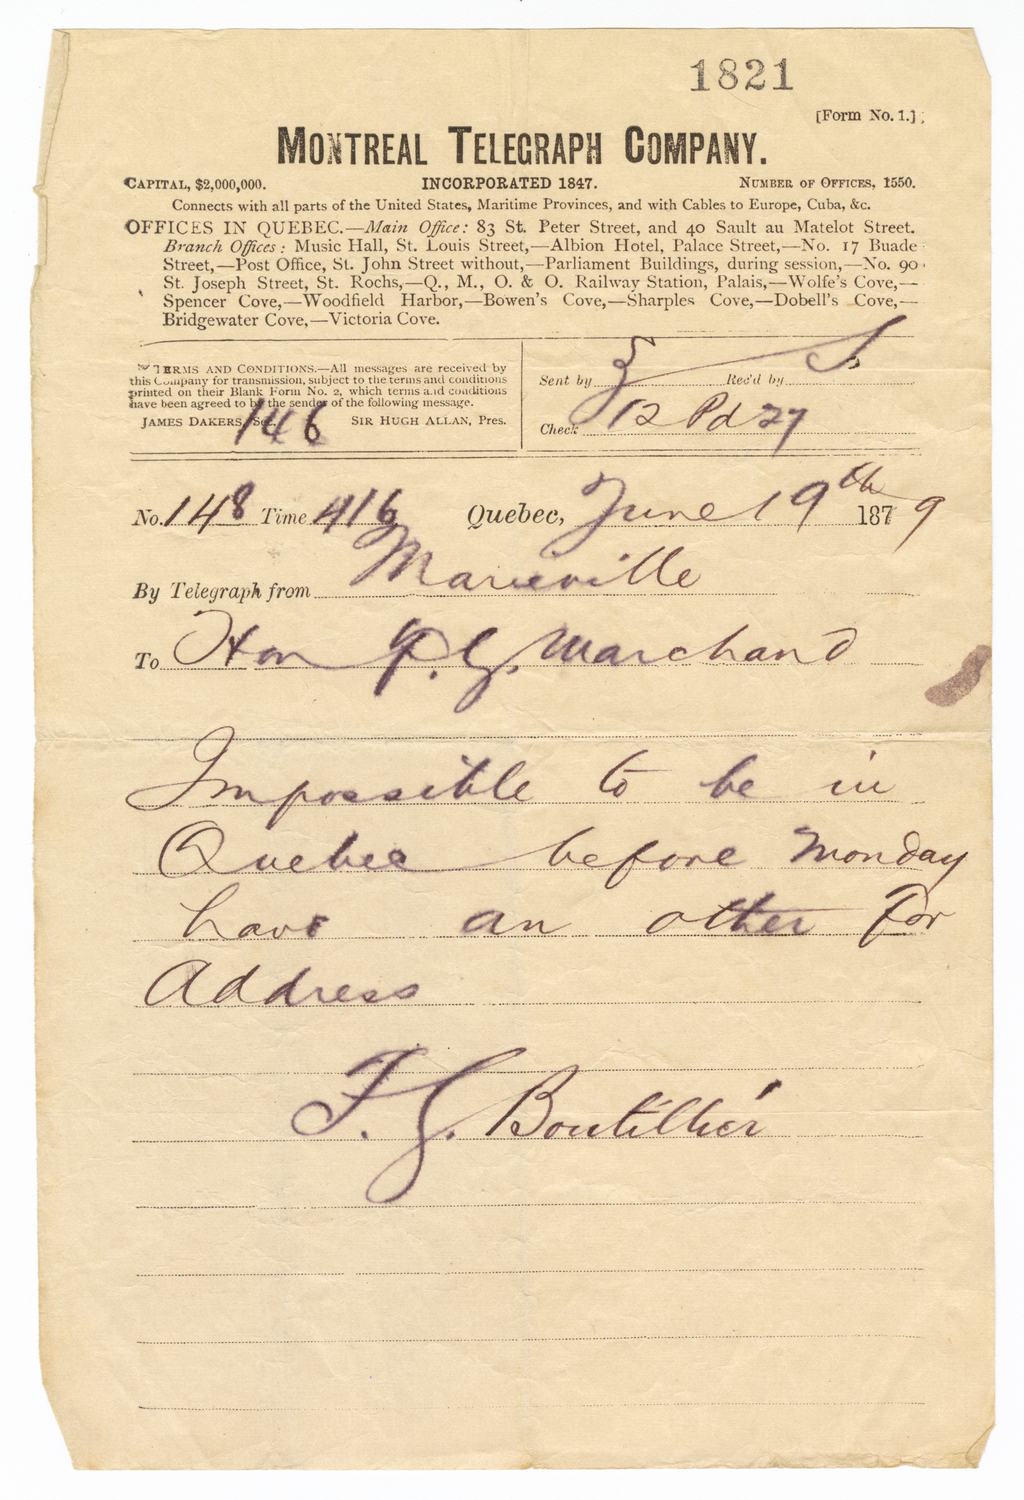 1821
[Form No. 1.]
MONTREAL TELEGRAPH COMPANY.
CAPITAL, $2,000,000. INCORPORATED 1847. NUMBER OF OFFICES, 1550.
Connects with all parts of the United States, Maritime Provinces, and with Cables to Europe, Cuba, &c.
OFFICES IN QUEBEC.—Main Office: 83 St. Peter Street, and 40 Sault au Matelot Street.
Branch Offices: Music Hall, St. Louis Street,—Albion Hotel, Palace Street,—No. 17 Buade
Street,—Post Office, St. John Street without,—Parliament Buildings, during session,—No. 90
St. Joseph Street, St. Rochs,—Q., M., O. & O. Railway Station, Palais,—Wolfe's Cove,—
Spencer Cove,—Woodfield Harbor,—Bowen's Cove,—Sharples Cove,—Dobell's Cove,—
Bridgewater Cove,—Victoria Cove.
TERMS AND CONDITIONS.—All messages are received by
this Company for transmission, subject to the terms and conditions
printed on their Blank Form No. 2, which terms and conditions
have been agreed to by the sender of the following message.
JAMES DAKERS, Sec. SIR HUGH ALLAN, Pres.
146
Sent by Rec'd by
Check 12 Pd 27
No. 148 Time 416 Quebec, June 19th 1879
By Telegraph from Marieville
To Hon F. G. Marchand
Impossible to be in
Quebec before Monday
have an other for
Address
F. G. Bouthillier